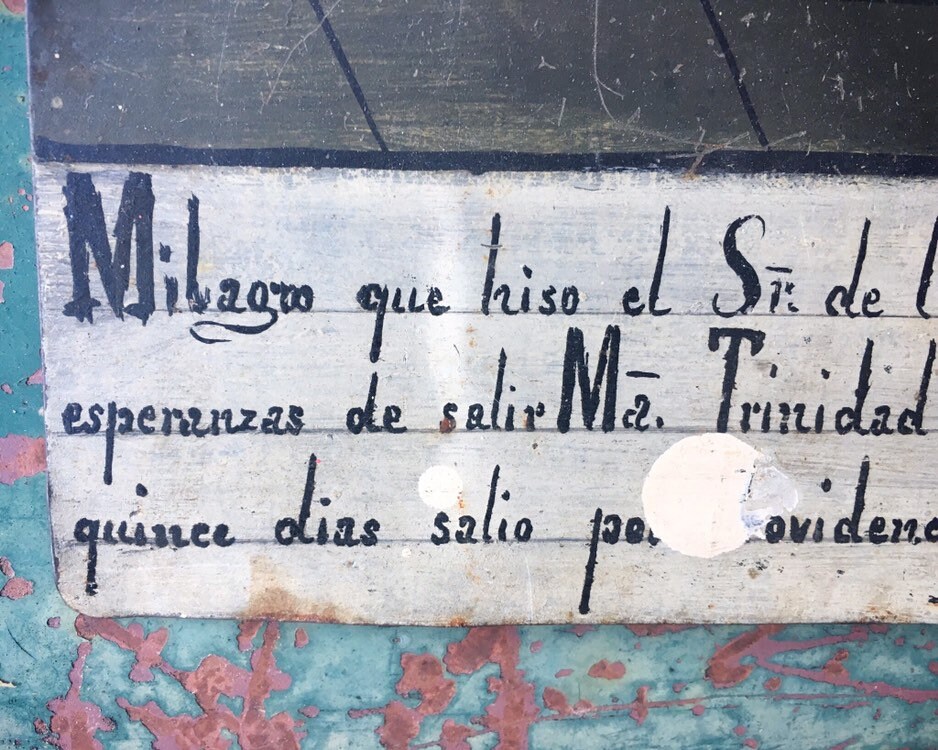 Milagro que hiso el Sr. de
esperanzas de salir Ma. Trinidad
quince dias salio